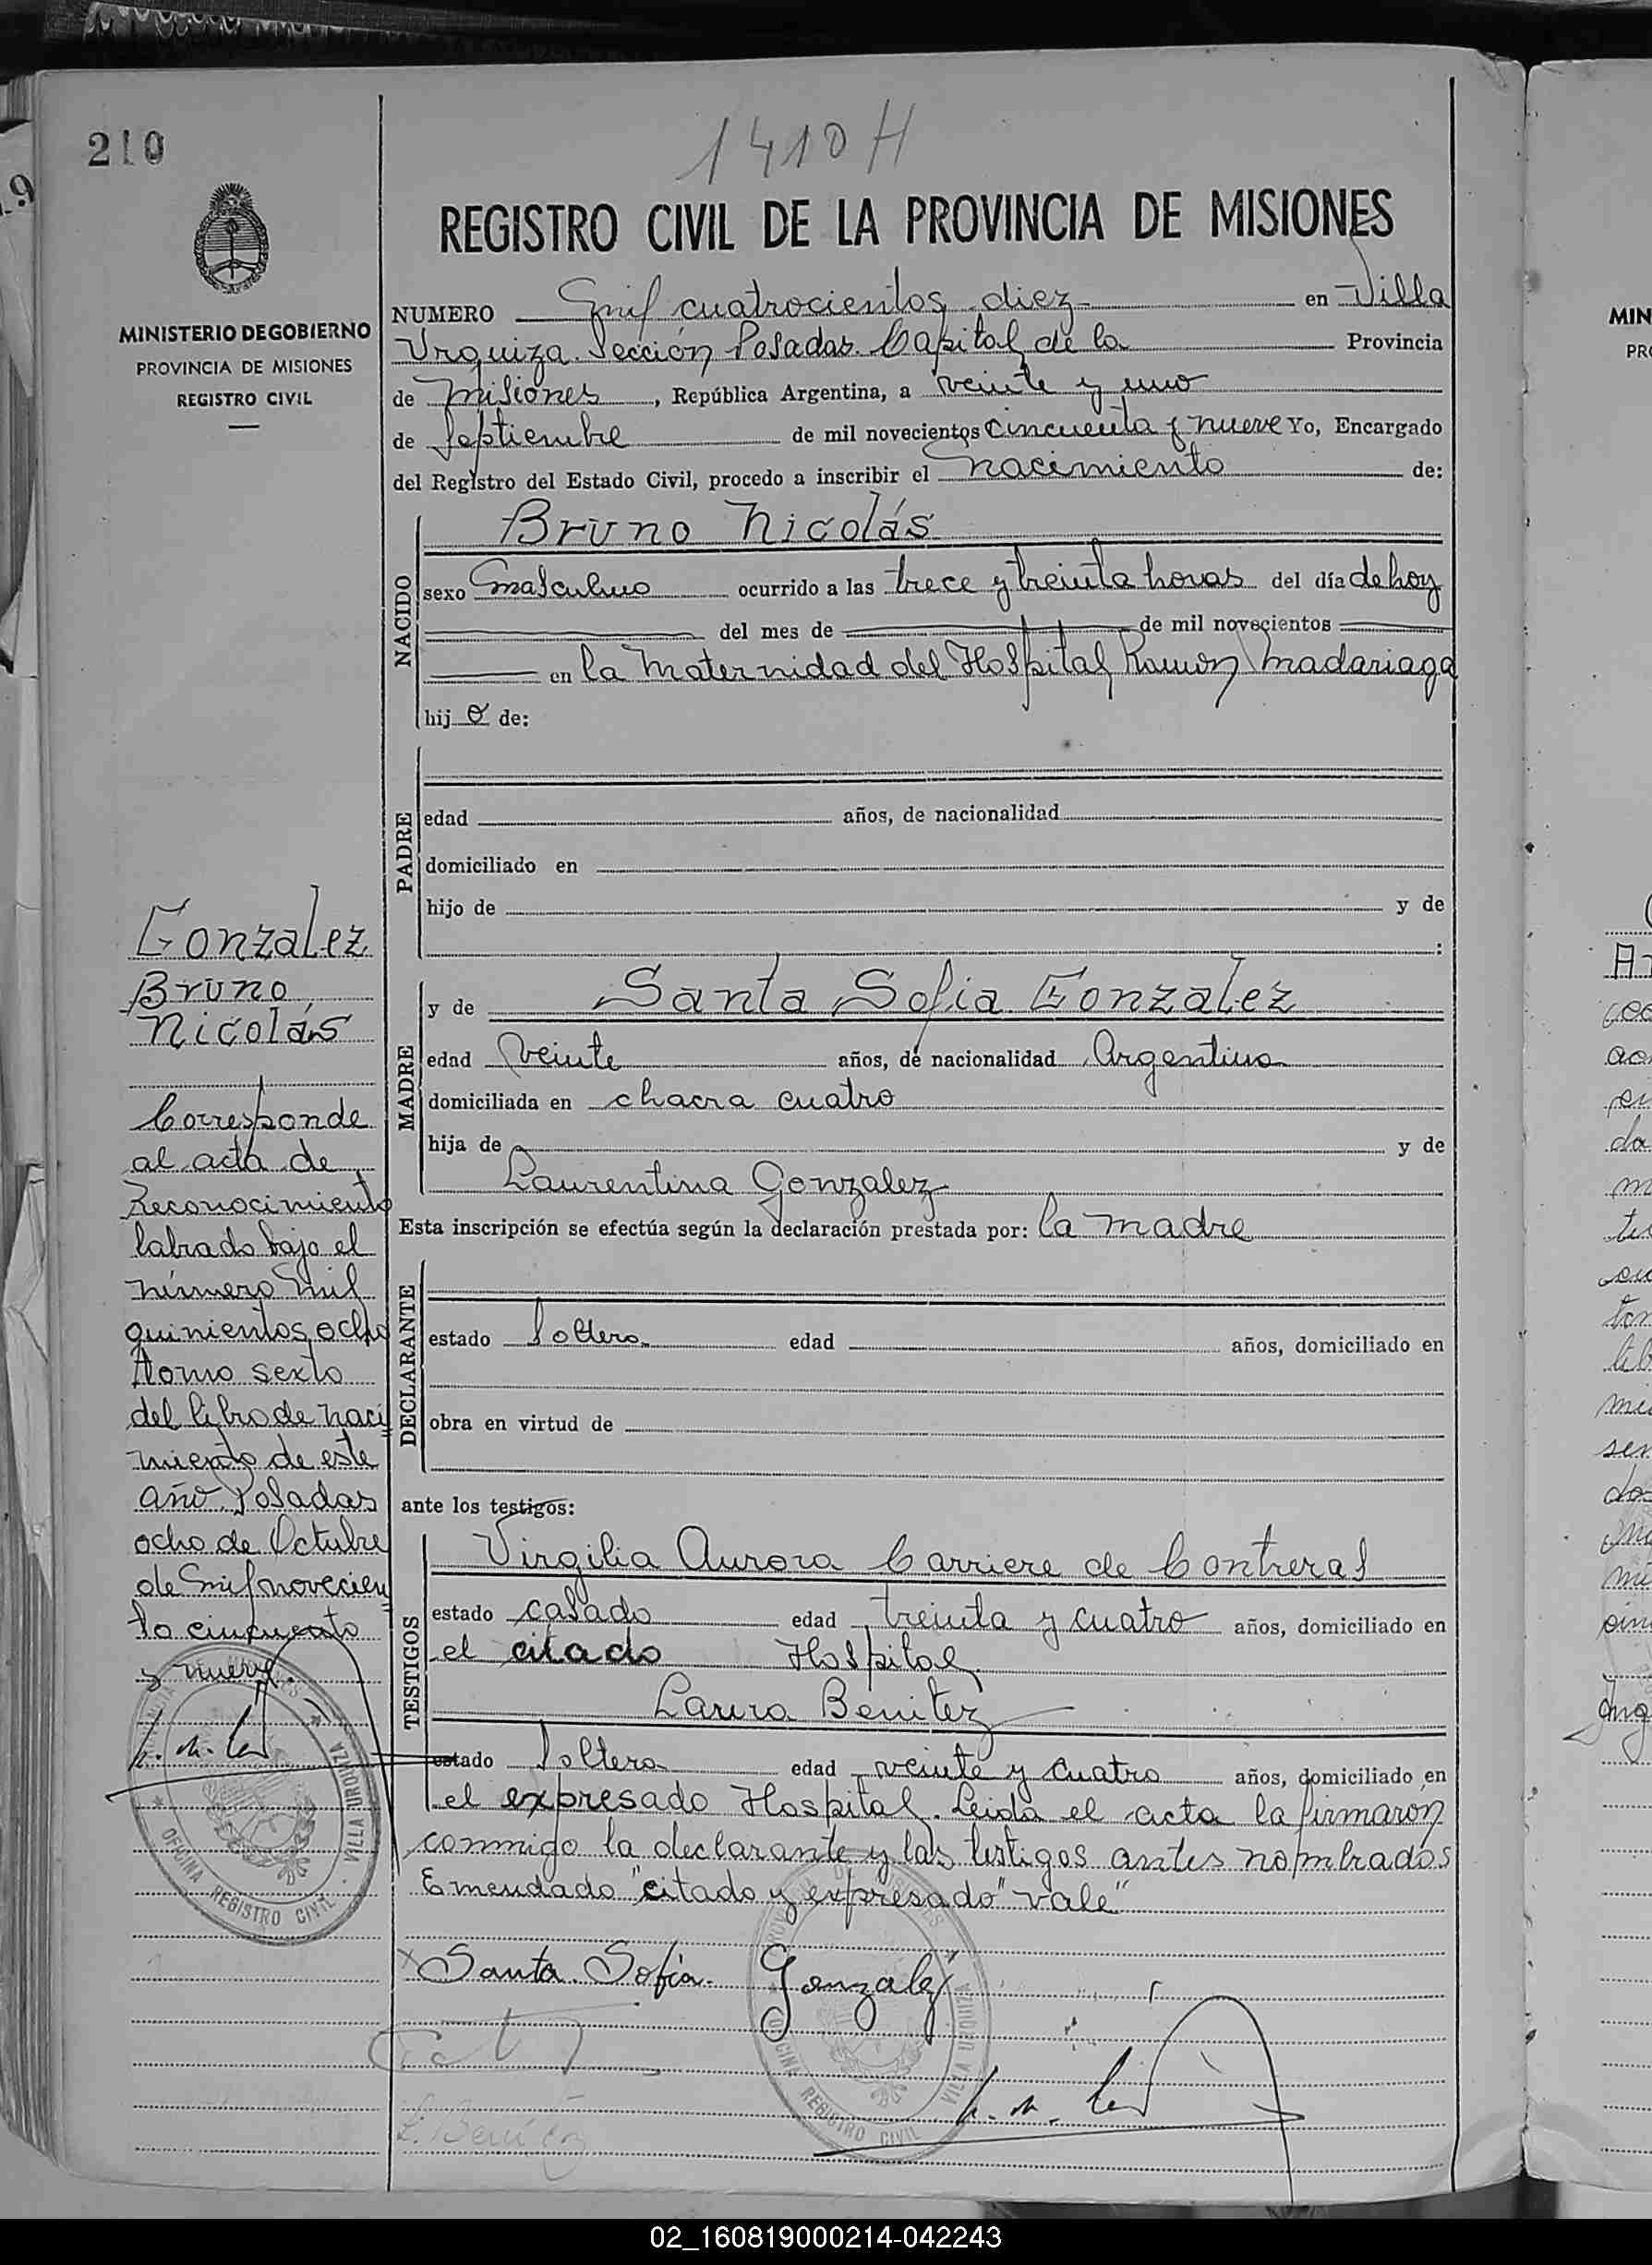 210
1410 H
MINISTERIO DE GOBIERNO
PROVINCIA DE MISIONES
REGISTRO CIVIL
REGISTRO CIVIL DE LA PROVINCIA DE MISIONES
NUMERO mil cuatrocientos diez en Villa
Urquiza Sección Posadas Capital de la Provincia
de Misiones, República Argentina, a veinte y uno
de Septiembre de mil novecientos cincuenta y nueve Yo, Encargado
del Registro del Estado Civil, procedo a inscribir el nacimiento de:
NACIDO
Bruno Nicolás
sexo masculino ocurrido a las trece y treinta horas del día de hoy
del mes de de mil novecientos
en la Maternidad del Hospital Ramon Madariaga
hijo de:
PADRE
edad años, de nacionalidad
domiciliado en
hijo de y de
:
MADRE
y de Santa Sofia Gonzalez
edad veinte años, de nacionalidad Argentina
domiciliada en chacra cuatro
hija de y de
Laurentina Gonzalez
Esta inscripción se efectúa según la declaración prestada por: la madre
DECLARANTE
estado Soltera edad años, domiciliado en
obra en virtud de
ante los testigos:
TESTIGOS
Virgilia Aurora Carriere de Contreras
estado casada edad treinta y cuatro años, domiciliado en
el citado Hospital
Laura Benitez
estado Soltera edad veinte y cuatro años, domiciliado en
el expresado Hospital. Leida el acta la firmaron
conmigo la declarante y las testigos antes nombrados
Emendado "citado y expresado" vale"
Santa Sofia Gonzalez
L. Benitez
Gonzalez
Bruno
Nicolás
Corresponde
al acta de
Reconocimiento
labrado bajo el
número mil
quinientos ocho
tomo sexto
del libro de naci
miento de este
año. Posadas
ocho de Octubre
de mil novecien
to cincuenta
y nueve.
OFICINA REGISTRO CIVIL
VILLA URQUIZA
OFICINA REGISTRO CIVIL
VILLA URQUIZA
MIN
02_160819000214-042243